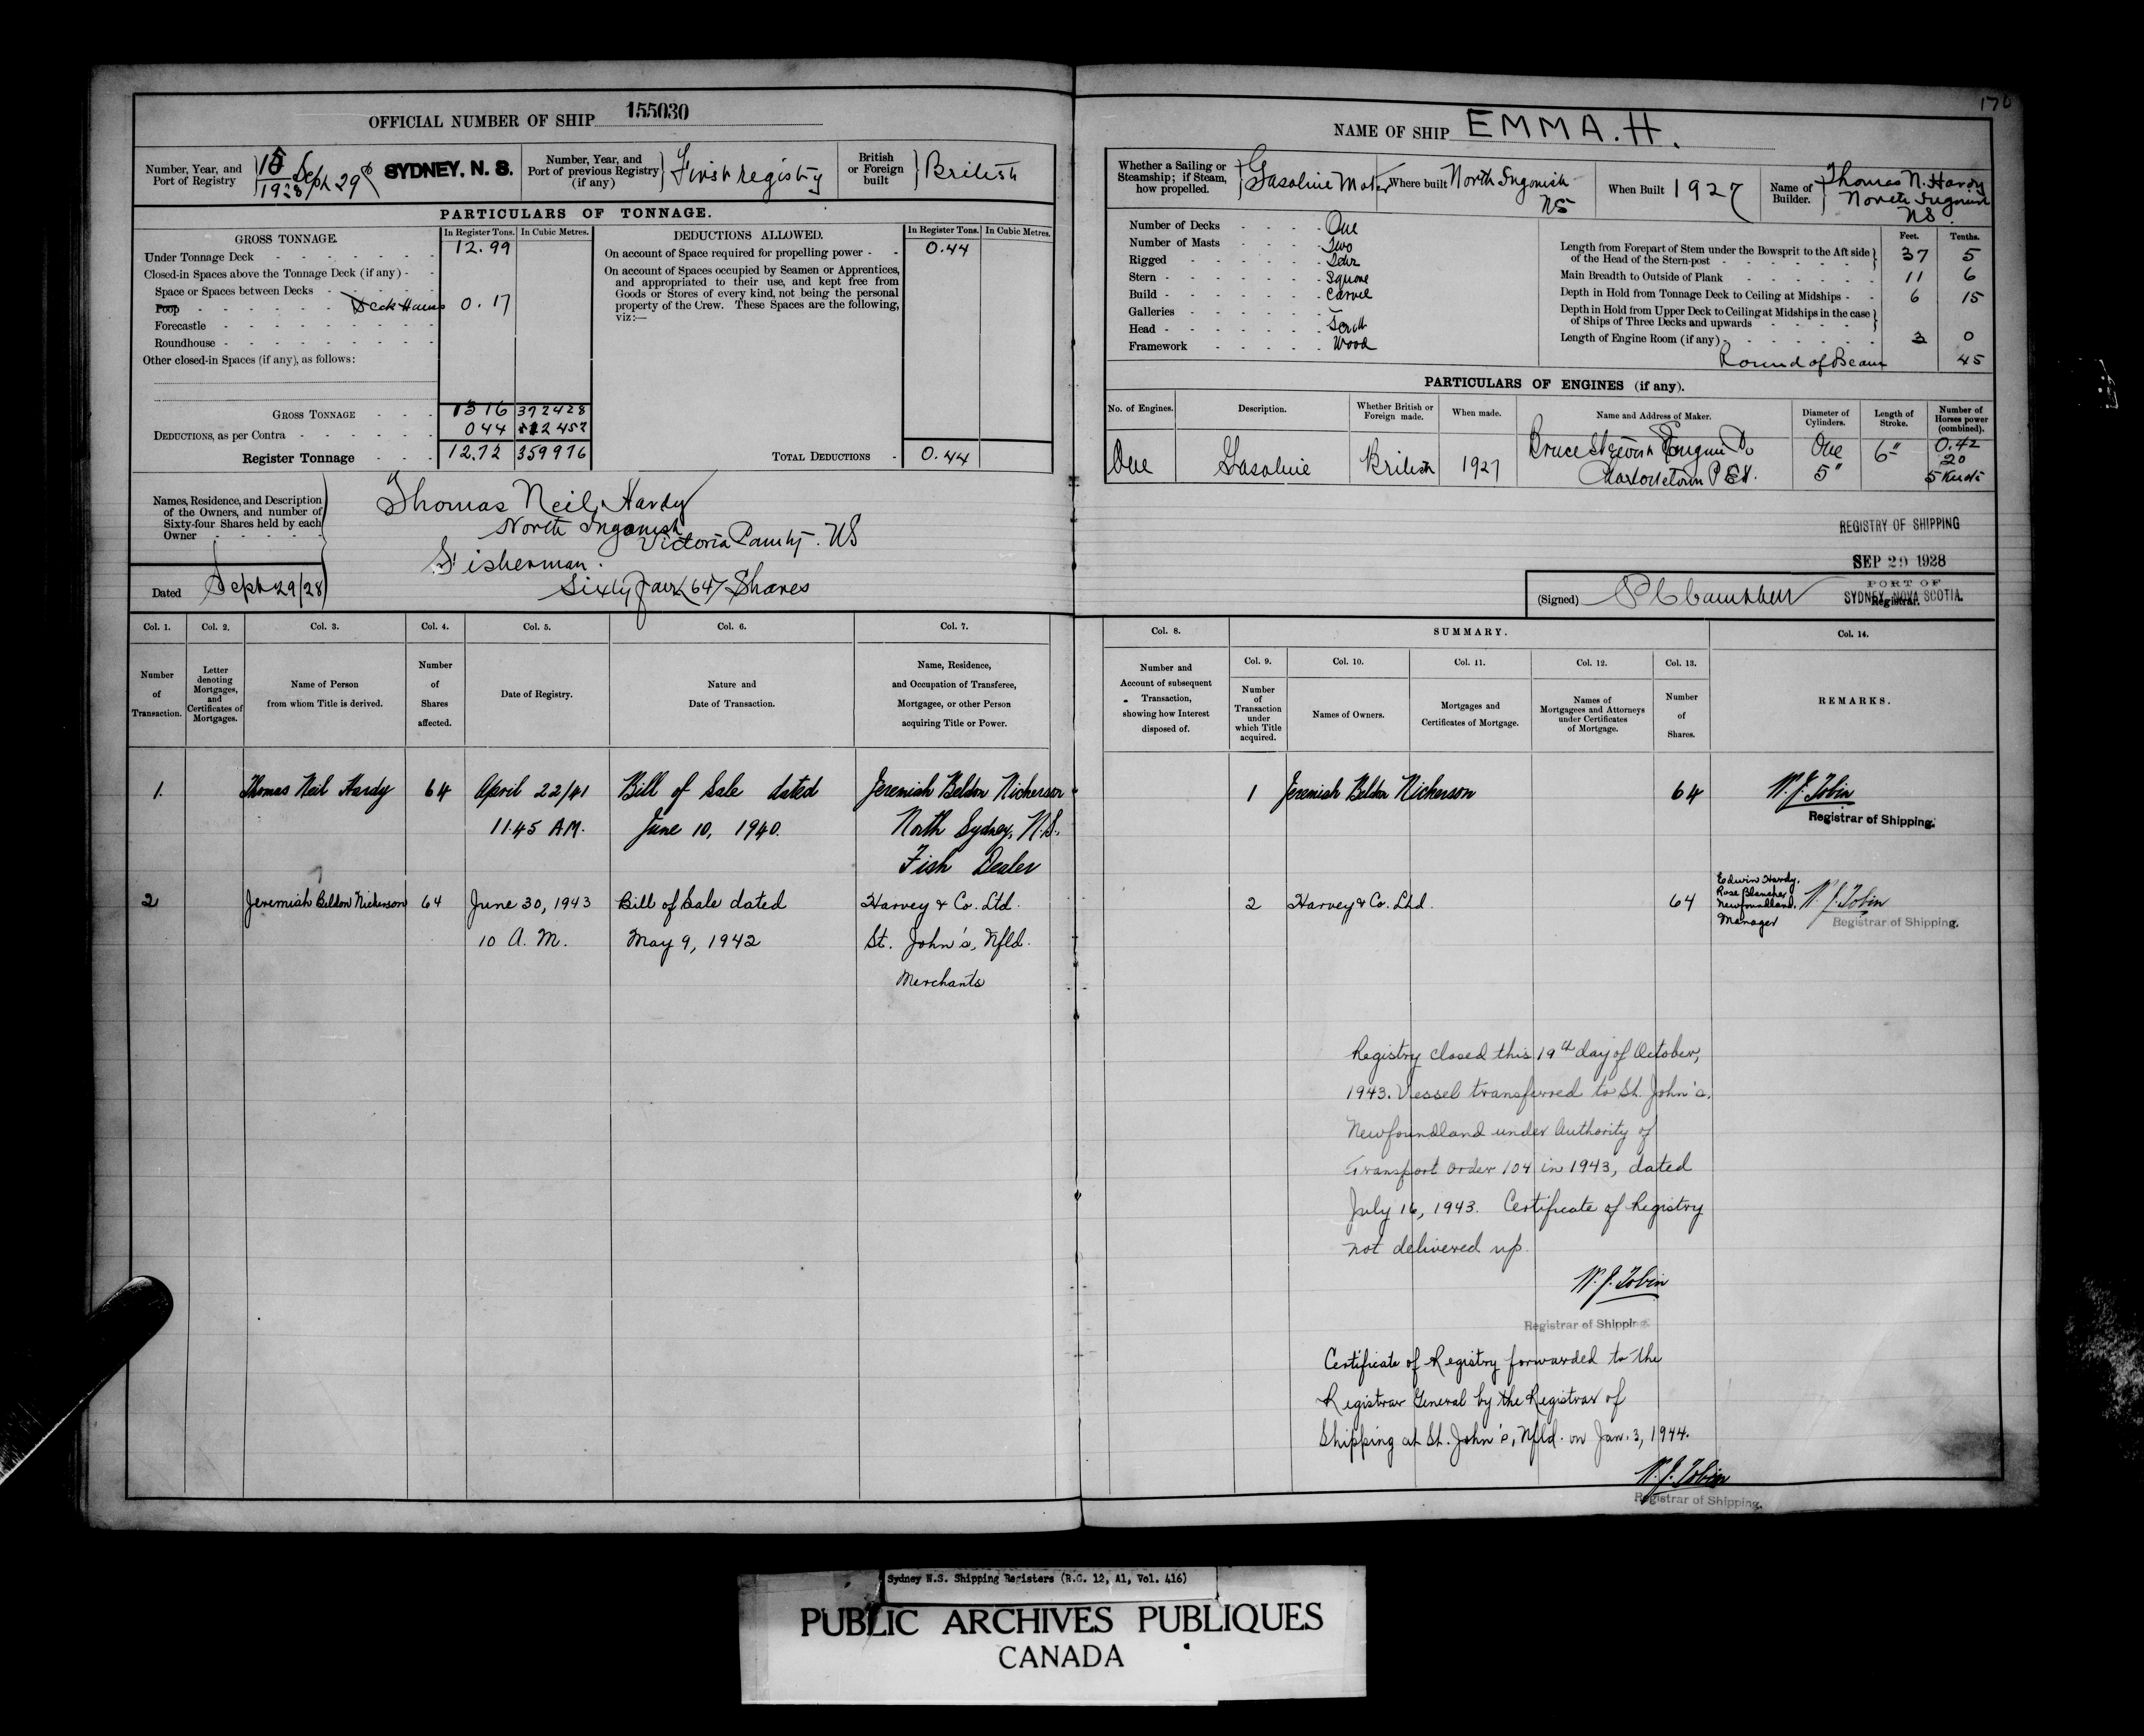 170
OFFICIAL NUMBER OF SHIP 155030
Number, Year, and Port of Registry 15/1928 Sept 29 SYDNEY, N. S.
Number, Year, and Port of previous Registry (if any) First registry
British or Foreign built British
PARTICULARS OF TONNAGE.
GROSS TONNAGE. In Register Tons. In Cubic Metres.
Under Tonnage Deck 12.99
Closed-in Spaces above the Tonnage Deck (if any)
Space or Spaces between Decks
Poop Deck House 0.17
Forecastle
Roundhouse
Other closed-in Spaces (if any), as follows:
GROSS TONNAGE 13 16 37 2428
DEDUCTIONS, as per Contra 0 44 12452
Register Tonnage 12.72 35 9976
DEDUCTIONS ALLOWED. In Register Tons. In Cubic Metres.
On account of Space required for propelling power 0.44
On account of Spaces occupied by Seamen or Apprentices,
and appropriated to their use, and kept free from
Goods or Stores of every kind, not being the personal
property of the Crew. These Spaces are the following,
viz:—
TOTAL DEDUCTIONS 0.44
Names, Residence, and Description
of the Owners, and number of
Sixty-four Shares held by each
Owner
Thomas Neil Hardy
North Ingonish
Victoria County. NS
Fisherman.
Sixty four (64) Shares
Dated Sept 29/28
NAME OF SHIP EMMA. H.
Whether a Sailing or Steamship; if Steam, how propelled. Gasoline Motor
Where built North Ingonish NS
When Built 1927
Name of Builder. Thomas N. Hardy North Ingonish NS.
Number of Decks One
Number of Masts Two
Rigged Schr
Stern Square
Build Carvel
Galleries
Head Scroll
Framework Wood
Feet. Tenths.
Length from Forepart of Stem under the Bowsprit to the Aft side of the Head of the Stern-post 37 5
Main Breadth to Outside of Plank 11 6
Depth in Hold from Tonnage Deck to Ceiling at Midships 6 15
Depth in Hold from Upper Deck to Ceiling at Midships in the case of Ships of Three Decks and upwards
Length of Engine Room (if any) 3 0
Round of Beam 45
PARTICULARS OF ENGINES (if any).
No. of Engines. Description. Whether British or Foreign made. When made. Name and Address of Maker. Diameter of Cylinders. Length of Stroke. Number of Horses power (combined).
One Gasoline British 1927 Bruce Stewart Engine Co Charlottetown P E I. One 5" 6" 0.42 20 5 Knots
REGISTRY OF SHIPPING
SEP 29 1928
PORT OF
SYDNEY, NOVA SCOTIA.
(Signed) Registrar.
Col. 1. Col. 2. Col. 3. Col. 4. Col. 5. Col. 6. Col. 7.
Number of Transaction.
Letter denoting Mortgages, and Certificates of Mortgages.
Name of Person from whom Title is derived.
Number of Shares affected.
Date of Registry.
Nature and Date of Transaction.
Name, Residence, and Occupation of Transferee, Mortgagee, or other Person acquiring Title or Power.
Col. 8. SUMMARY. Col. 14.
Col. 9. Col. 10. Col. 11. Col. 12. Col. 13.
Number and Account of subsequent Transaction, showing how Interest disposed of.
Number of Transaction under which Title acquired.
Names of Owners.
Mortgages and Certificates of Mortgage.
Names of Mortgagees and Attorneys under Certificates of Mortgage.
Number of Shares.
REMARKS.
1. Thomas Neil Hardy 64 April 22/41 Bill of Sale dated Jeremiah Beldon Nickerson
11.45 AM. June 10, 1940. North Sydney, N.S.
Fish Dealer
1 Jeremiah Beldon Nickerson 64 W. J. Tobin
Registrar of Shipping.
2 Jeremiah Beldon Nickerson 64 June 30, 1943 Bill of Sale dated Harvey & Co. Ltd.
10 A. M. May 9, 1942 St. John's, Nfld.
Merchants
2 Harvey & Co. Ltd. 64
Edwin Hardy,
Rose Blanche,
Newfoundland.
Manager
W. J. Tobin
Registrar of Shipping.
Registry closed this 19th day of October,
1943. Vessel transferred to St. John's,
Newfoundland under Authority of
Transport Order 104 in 1943, dated
July 16, 1943. Certificate of Registry
not delivered up.
W. J. Tobin
Registrar of Shipping
Certificate of Registry forwarded to the
Registrar General by the Registrar of
Shipping at St. John's, Nfld. on Jan. 3, 1944.
W. J. Tobin
Registrar of Shipping.
Sydney N.S. Shipping Registers (R.G. 12, A1, Vol. 416)
PUBLIC ARCHIVES PUBLIQUES
CANADA